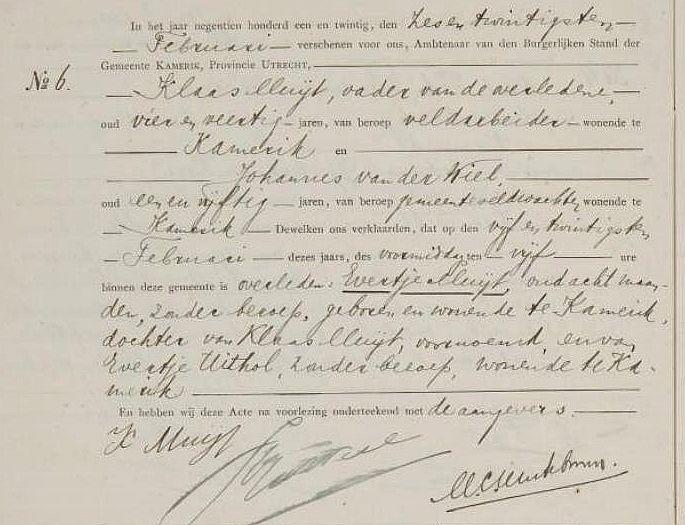 In het jaar negentien honderd een en twintig, den zes en twintigsten
Februari verschenen voor ons, Ambtenaar van den Burgerlijken Stand der
Gemeente KAMERIK, Provincie UTRECHT,
No 6. Klaas Muijt, vader van de overledene,
oud vier en veertig jaren, van beroep veldarbeider wonende te
Kamerik en
Johannes van der Wiel,
oud een en vijftig jaren, van beroep gemeenteveldwachter, wonende te
Kamerik Dewelken ons verklaarden, dat op den vijf en twintigsten
Februari dezes jaars, des voormiddags ten vijf ure
binnen deze gemeente is overleden: Evertje Muijt, oud acht maan-
den, zonder beroep, geboren en wonende te Kamerik,
dochter van Klaas Muijt, voornoemd, en van
Evertje Uithol, zonder beroep, wonende te Ka-
merik
En hebben wij deze Acte na voorlezing onderteekend met de aangevers.
K Muijt